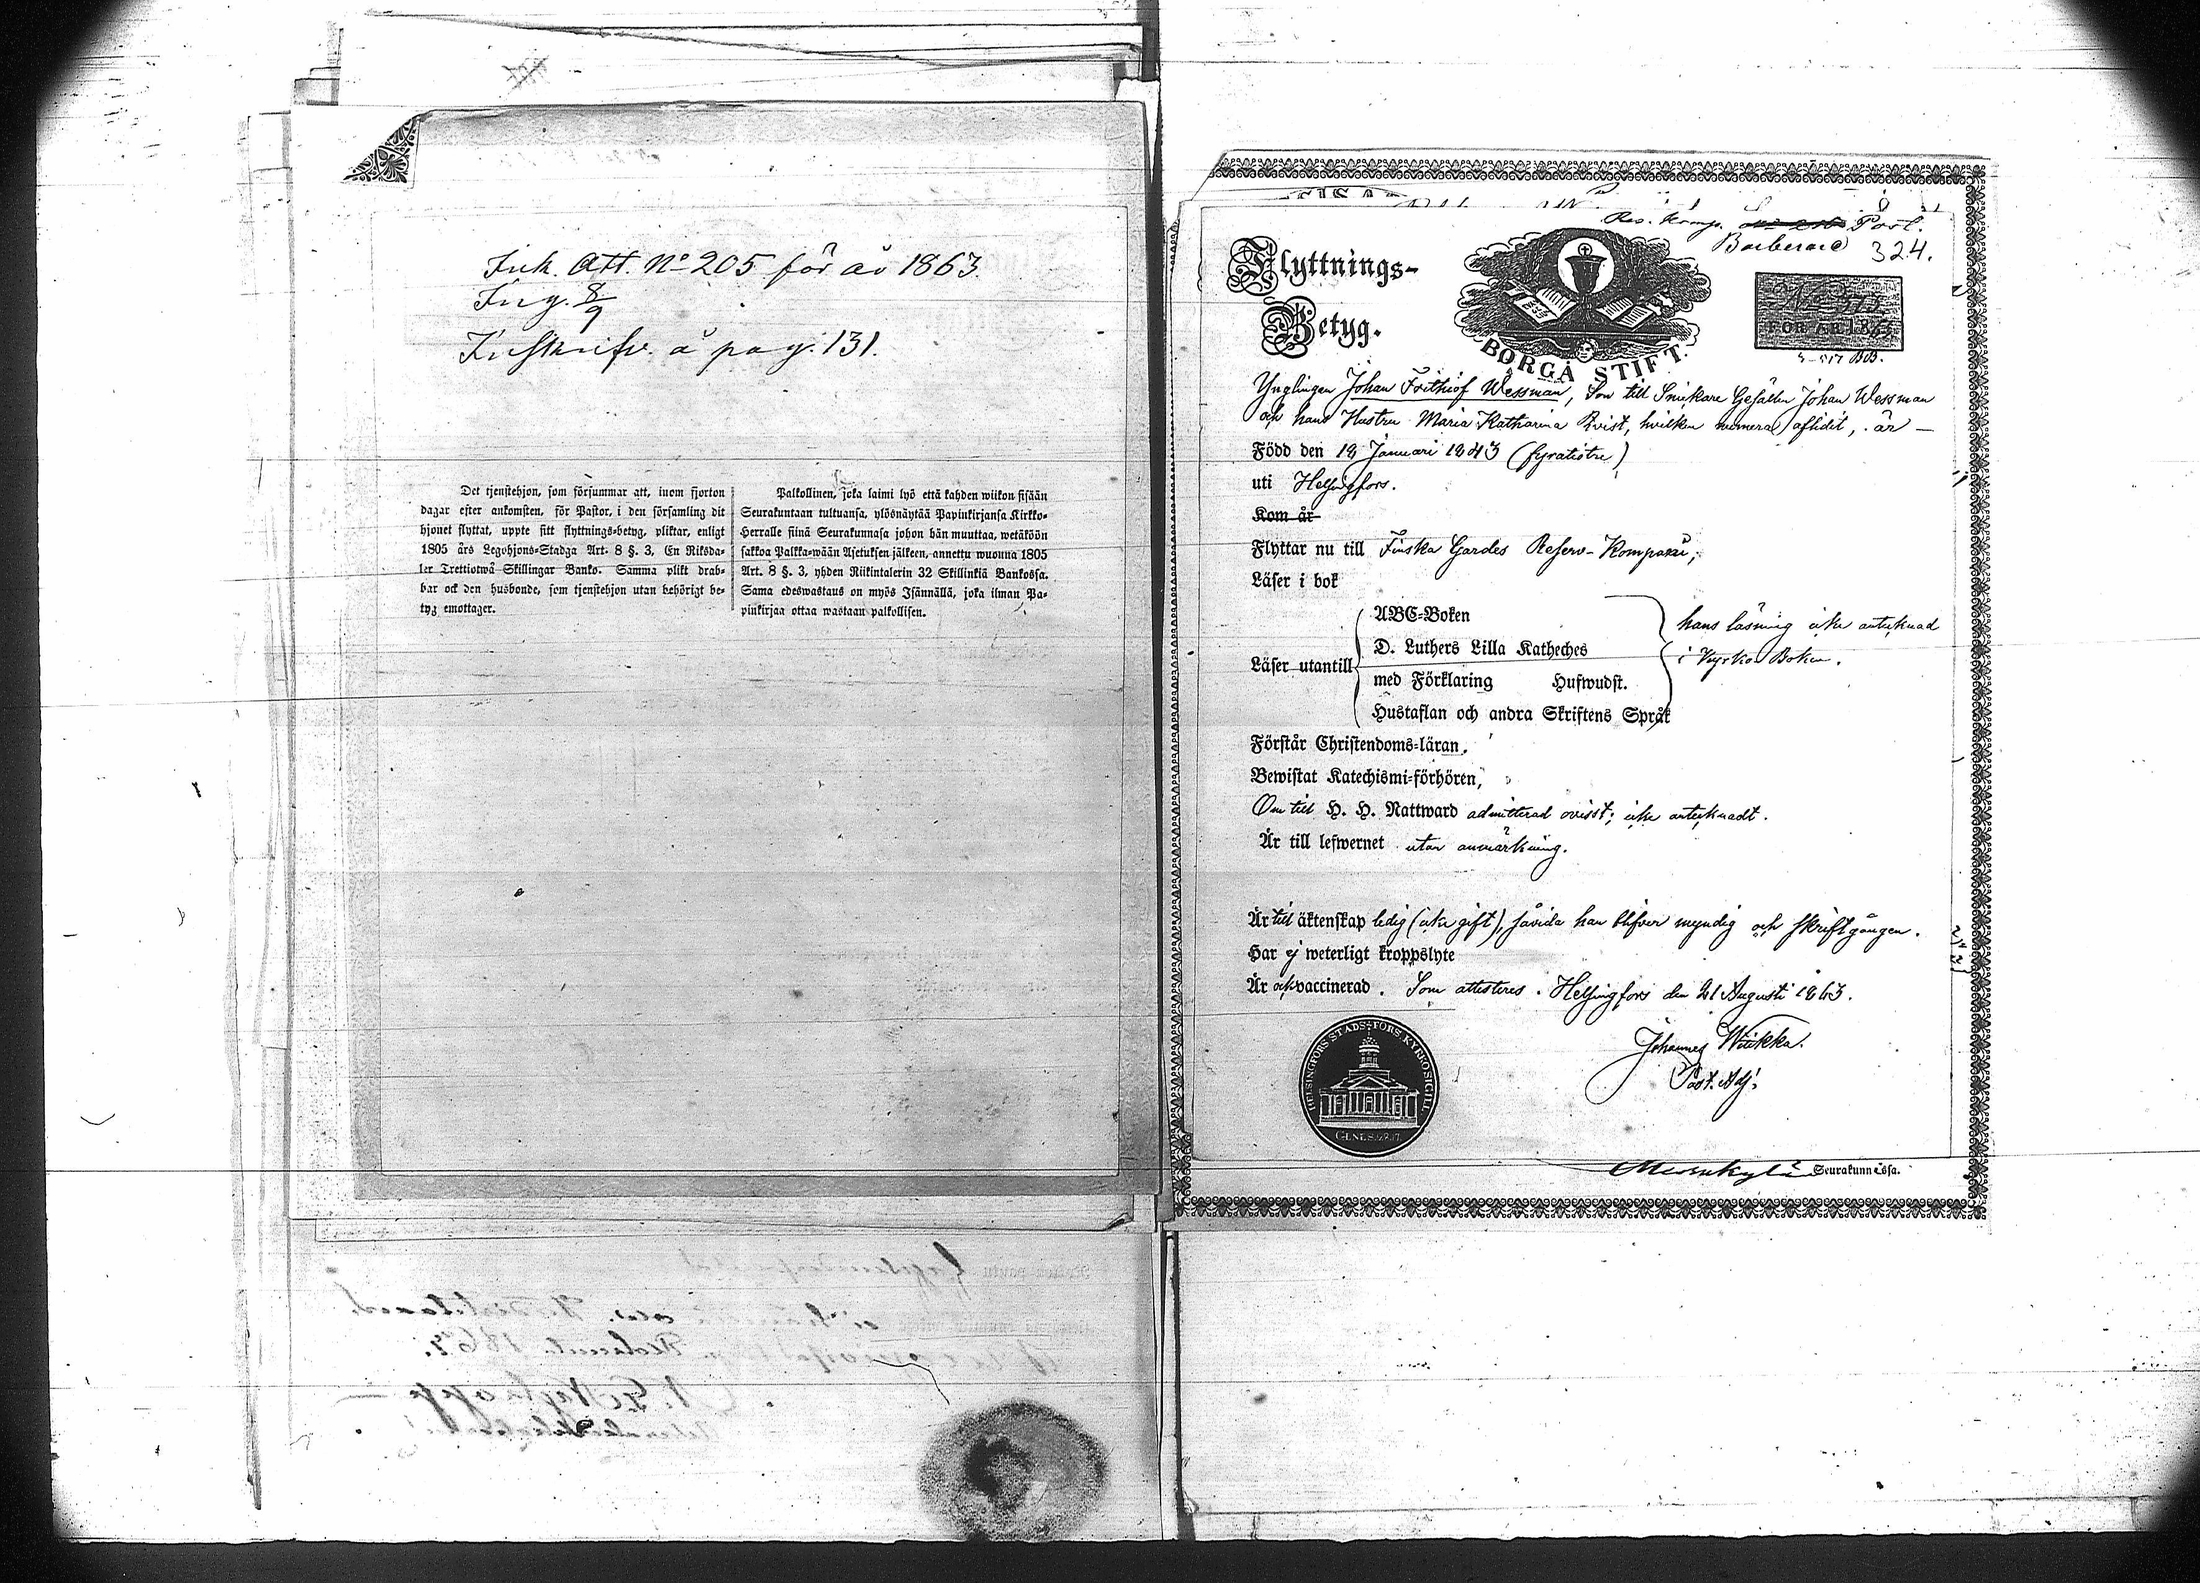 Ink. Att. No 205 för år 1863.
Ing. 8/9
Inskrifv. å pag. 131.
Det tjenstehjon, som försummar att, inom fjorton
dagar efter ankomsten, för Pastor, i den församling dit
hjonet flyttat, uppte sitt flyttnings-betyg, pliktar, enligt
1805 års Legohjons-Stadga Art. 8 §. 3, En Riksda-
ler Trettiotwå Skillingar Banko. Samma plikt drab-
bar ock den husbonde, som tjenstehjon utan behörigt be-
tyg emottager.
Palkollinen, joka laimi lyö että kahden wiikon sisään
Seurakuntaan tultuansa, ylösnäytää Papinkirjansa Kirkko-
Herralle siinä Seurakunnasa johon hän muuttaa, wetäköön
sakkoa Palkka-wään Asetuksen jälkeen, annettu wuonna 1805
Art. 8 §. 3, yhden Riikintalerin 32 Skillinkiä Bankossa.
Sama edeswastaus on myös Isännällä, joka ilman Pa-
pinkirjaa ottaa wastaan palkollisen.
Res. Komp. Pärl.
324.
Flyttnings-
Betyg.
BORGÅ STIFT.
FÖR ÅR 1863
Ynglingen Johan Frithiof Wessman, Son till Snickare Gesällen Johan Wessman
och hans Hustru Maria Katharina Qvist, hvilken numera aflidit, är —
Född den 18 Januari 1843 (fyratiotre)
uti Helsingfors.
Kom år
Flyttar nu till Finska Gardes Reserv-Kompani,
Läser i bok
Läser utantill
ABC-Boken
D. Luthers Lilla Katheches
med Förklaring Hufwudst.
Hustaflan och andra Skriftens Språk
hans läsning icke antecknad
i Kyrko Boken.
Förstår Christendoms-läran,
Bewistat Katechismi-förhören,
Om till H. H. Nattward admitterad ovisst; icke antecknadt.
Är till lefwernet utan anmärkning.
Är till äktenskap ledig (icke gift), såvida han blifver myndig och skriftgången.
Har ej weterligt kroppslyte
Är ock vaccinerad. Som attesteres. Helsingfors den 21 Augusti 1863.
Johannes Wiikka.
Past. Adj.
HELSINGFORS STADS-FÖRS. KYRKOSIGILL
GENES. 28.17.
Seurakunnassa.